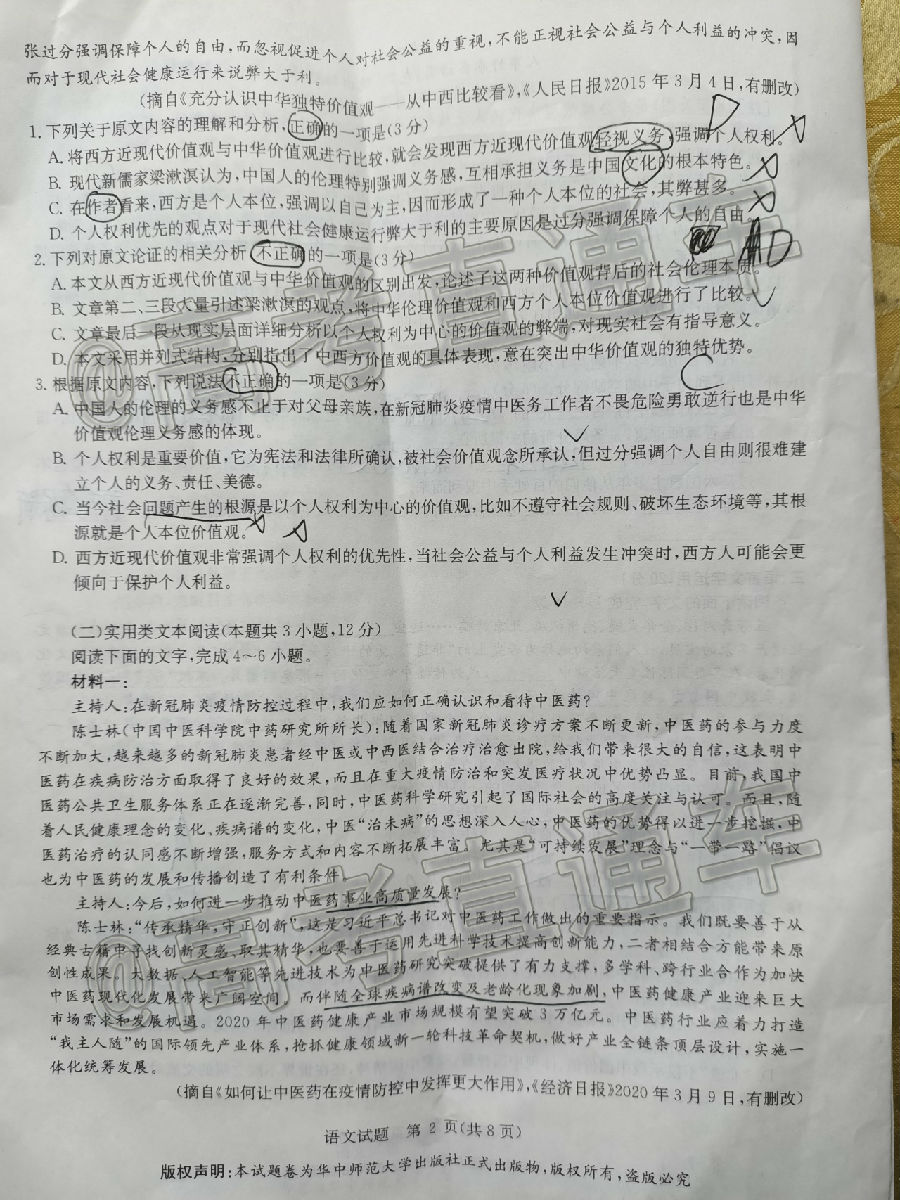 张过分强调保障个人的自由,而忽视促进个人对社会公益的重视,不能正视社会公益与个人利益的冲突,因
而对于现代社会健康运行来说弊大于利。
(摘自《充分认识中华独特价值观——从中西比较看》,《人民日报》2015年3月4日,有删改)
1.下列关于原文内容的理解和分析,正确的一项是(3分)
D
A. 将西方近现代价值观与中华价值观进行比较,就会发现西方近现代价值观轻视义务,强调个人权利。
B. 现代新儒家梁漱溟认为,中国人的伦理特别强调义务感,互相承担义务是中国文化的根本特色。
C. 在作者看来,西方是个人本位,强调以自己为主,因而形成了一种个人本位的社会,其弊甚多。
D. 个人权利优先的观点对于现代社会健康运行弊大于利的主要原因是过分强调保障个人的自由。
2. 下列对原文论证的相关分析,不正确的一项是(3分)
D
A.本文从西方近现代价值观与中华价值观的区别出发,论述了这两种价值观背后的社会伦理本质。
B. 文章第二、三段大量引述梁漱溟的观点,将中华伦理价值观和西方个人本位价值观进行了比较。
C. 文章最后一段从现实层面详细分析以个人权利为中心的价值观的弊端,对现实社会有指导意义。
D. 本文采用并列式结构,分别指出了中西方价值观的具体表现,意在突出中华价值观的独特优势。
3. 根据原文内容,下列说法不正确的一项是(3分)
C
A. 中国人的伦理的义务感不止于对父母亲族,在新冠肺炎疫情中医务工作者不畏危险勇敢逆行也是中华
价值观伦理义务感的体现。
B. 个人权利是重要价值,它为宪法和法律所确认,被社会价值观念所承认,但过分强调个人自由则很难建
立个人的义务、责任、美德。
C. 当今社会问题产生的根源是以个人权利为中心的价值观,比如不遵守社会规则、破坏生态环境等,其根
源就是个人本位价值观。
D. 西方近现代价值观非常强调个人权利的优先性,当社会公益与个人利益发生冲突时,西方人可能会更
倾向于保护个人利益。
(二)实用类文本阅读(本题共3小题,12分)
阅读下面的文字,完成4~6小题。
材料一:
主持人:在新冠肺炎疫情防控过程中,我们应如何正确认识和看待中医药?
陈士林(中国中医科学院中药研究所所长):随着国家新冠肺炎诊疗方案不断更新,中医药的参与力度
不断加大,越来越多的新冠肺炎患者经中医或中西医结合治疗治愈出院,给我们带来很大的自信,这表明中
医药在疾病防治方面取得了良好的效果,而且在重大疫情防治和突发医疗状况中优势凸显。目前,我国中
医药公共卫生服务体系正在逐渐完善,同时,中医药科学研究引起了国际社会的高度关注与认可。而且,随
着人民健康理念的变化、疾病谱的变化,中医“治未病”的思想深入人心,中医药的优势得以进一步挖掘,中
医药治疗的认同感不断增强,服务方式和内容不断拓展丰富。尤其是“可持续发展”理念与“一带一路”倡议
也为中医药的发展和传播创造了有利条件。
主持人:今后,如何进一步推动中医药事业高质量发展?
陈士林:“传承精华,守正创新”,这是习近平总书记对中医药工作做出的重要指示。我们既要善于从
经典古籍中寻找创新灵感、取其精华,也要善于运用先进科学技术提高创新能力,二者相结合方能带来原
创性成果。大数据、人工智能等先进技术为中医药研究突破提供了有力支撑,多学科、跨行业合作为加快
中医药现代化发展带来广阔空间。而伴随全球疾病谱改变及老龄化现象加剧,中医药健康产业迎来巨大
市场需求和发展机遇。2020年中医药健康产业市场规模有望突破3万亿元。中医药行业应着力打造
“我主人随”的国际领先产业体系,抢抓健康领域新一轮科技革命契机,做好产业全链条顶层设计,实施一
体化统筹发展。
(摘自《如何让中医药在疫情防控中发挥更大作用》,《经济日报》2020年3月9日,有删改)
语文试题 第2页(共8页)
版权声明:本试题卷为华中师范大学出版社正式出版物,版权所有,盗版必究
@高考直通车
@高考直通车